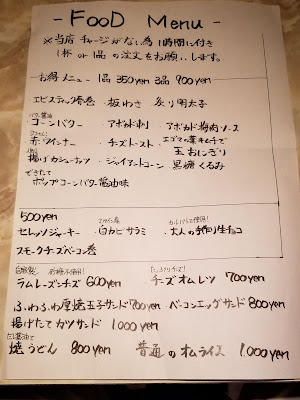 - FOOD Menu -
※当店 チャージがない為 1時間に付き
1杯 or 1品 の注文をお願いします。
お得メニュー 1品 350yen 3品 900yen
エビスティック春巻 板わさ 炙り明太子
バター醤油
コーンバター アボカド刺 アボカド梅肉ソース
赤ウィンナー チーズトースト エゴマの葉キムチで
玉おにぎり
揚げカシューナッツ ジャイアントコーン 黒糖くるみ
できたて
ポップコーンバター醤油味
500yen
セレッソジャーキー 白カビサラミ 大人の手作り生チョコ
スモークチーズベーコン巻
自家製 砂糖不使用!
ラムレーズンチーズ 600yen チーズオムレツ 700yen
ふわふわ厚焼玉子サンド 700yen ベーコンエッグサンド 800yen
揚げたてカツサンド 1000yen
焼うどん 800yen 普通のオムライス 1.000yen